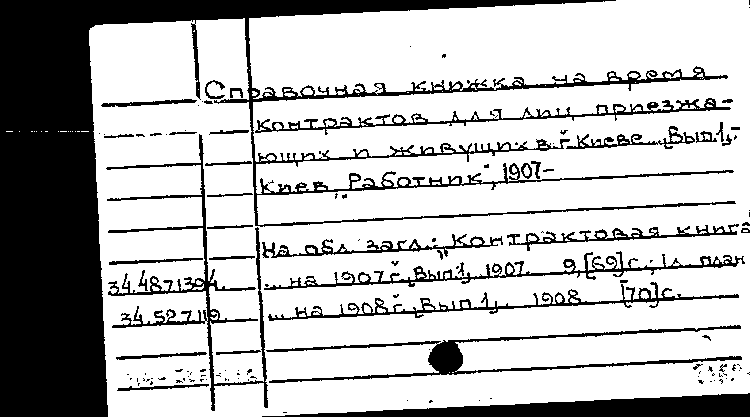 Справочная книжка на время
контрактов для лиц приезжа-
ющих и живущих в г. Киеве. Вып. 1,-
Киев, "Работник", 1907-
На обл. загл.: "Контрактовая книга
34.487139 ... на 1907 г., Вып. 1, 1907. 9, [69] с.; 1 л. план
34.527119. ... на 1908 г., Вып. 1,. 1908 [70] с.